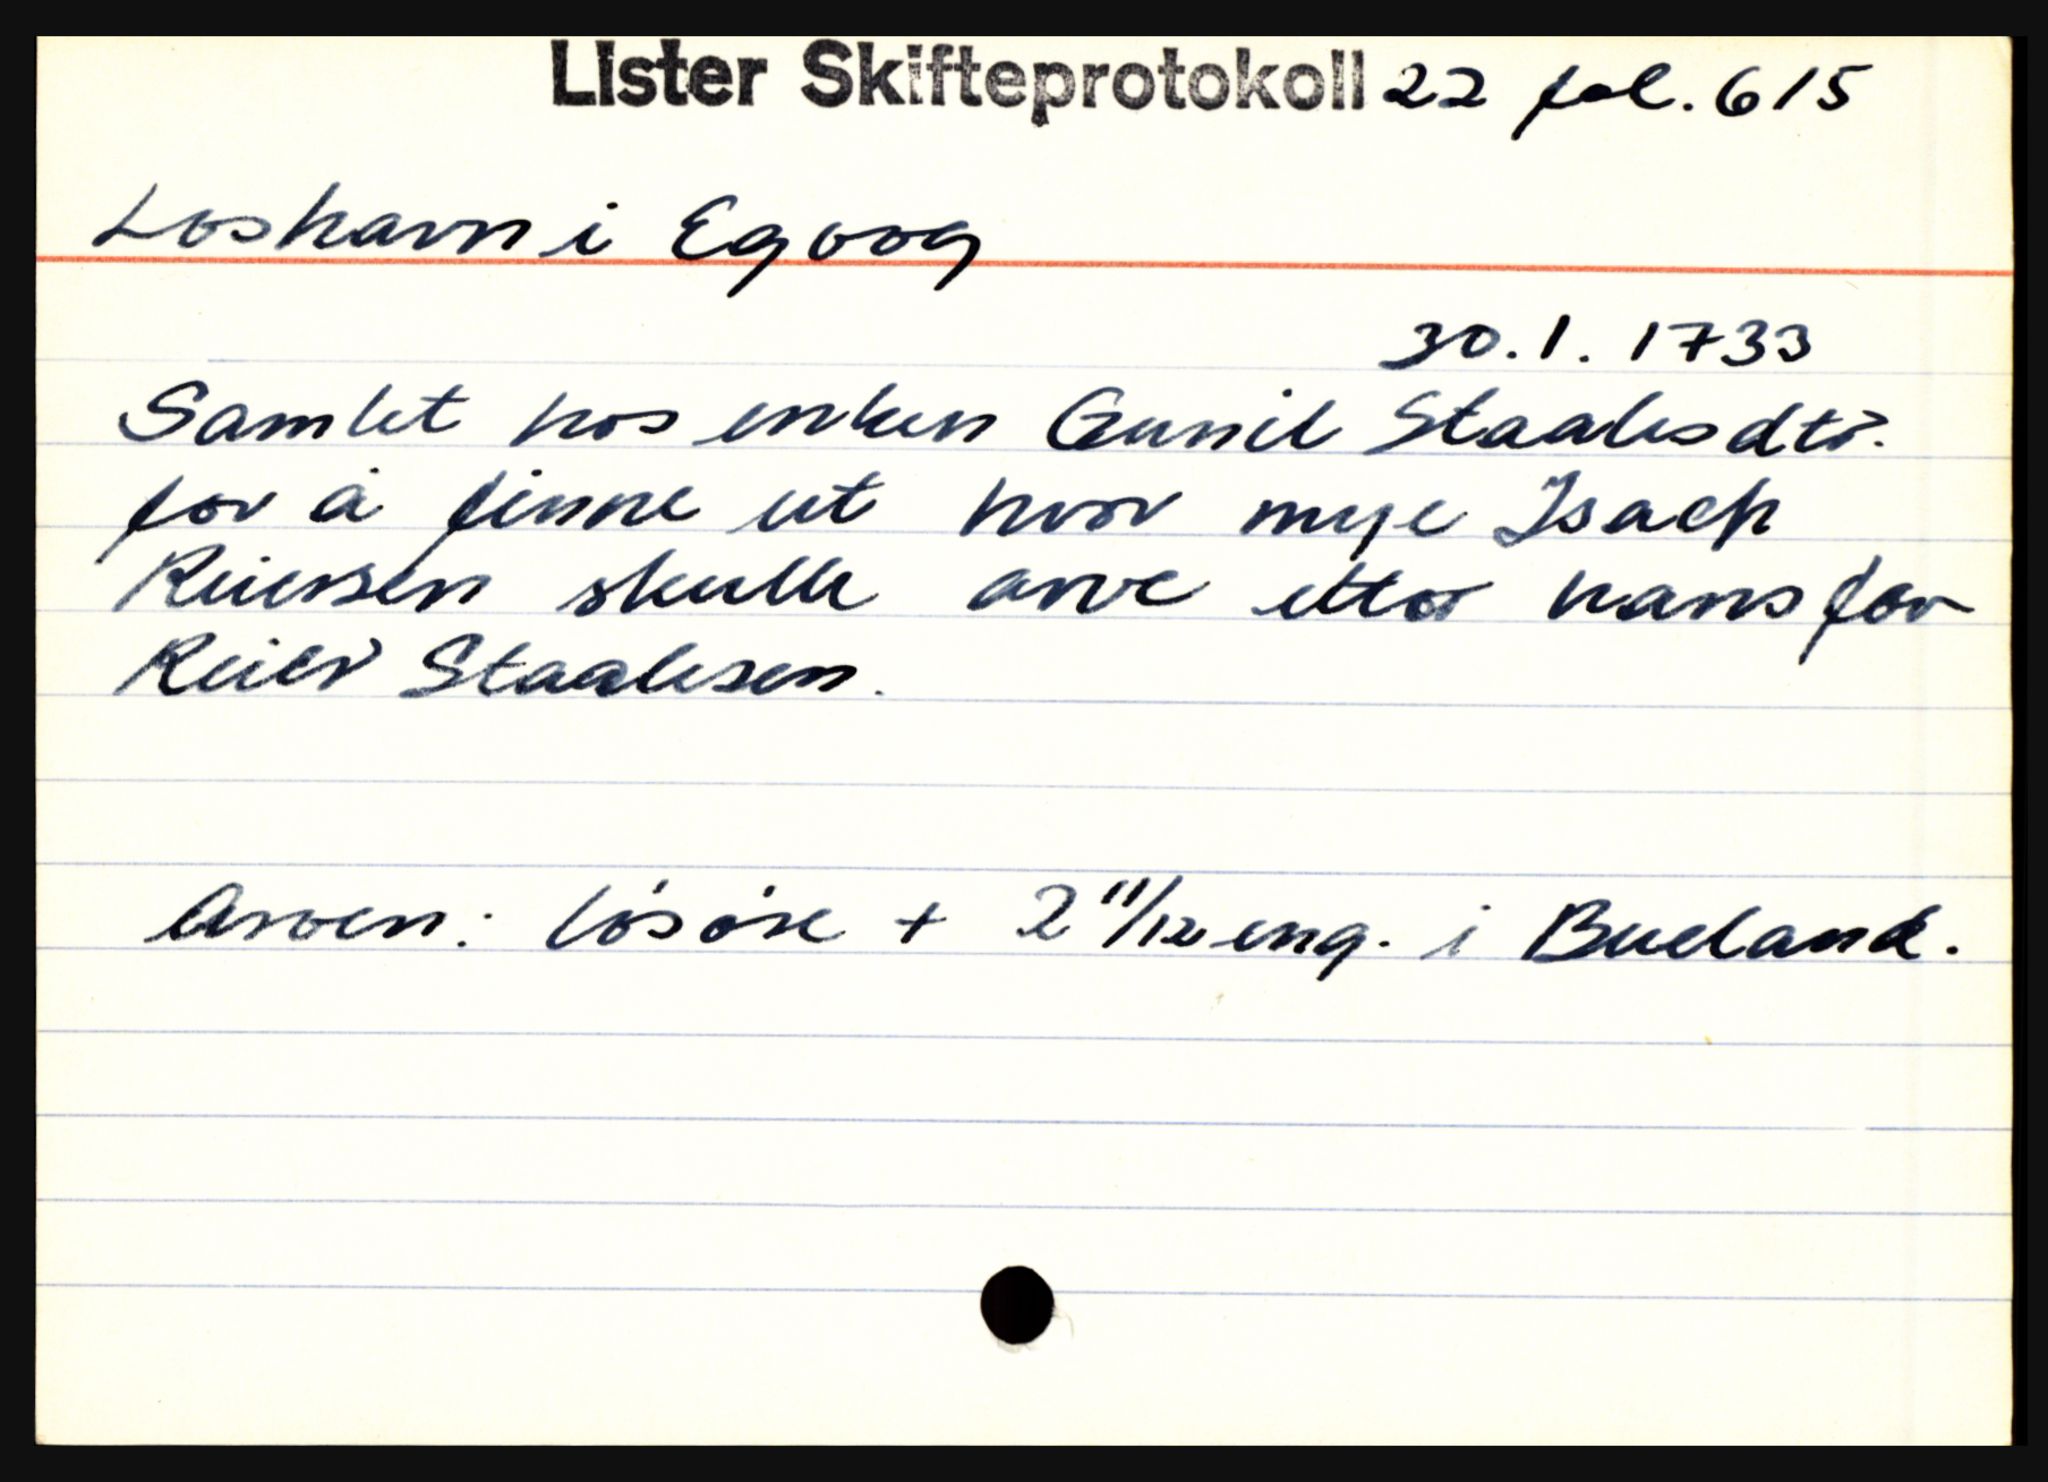 Lister Skifteprotokoll 22 fol. 615
Loshavn i Egvog
30.1.1733
Samlet hos enken Gunil Staalesdtr.
for å finne ut hvor mye Isach
Reiersen skulle arve etter hans far
Reier Staalesen.
Arven: lösöre + 2 11/12 eng. i Bueland.